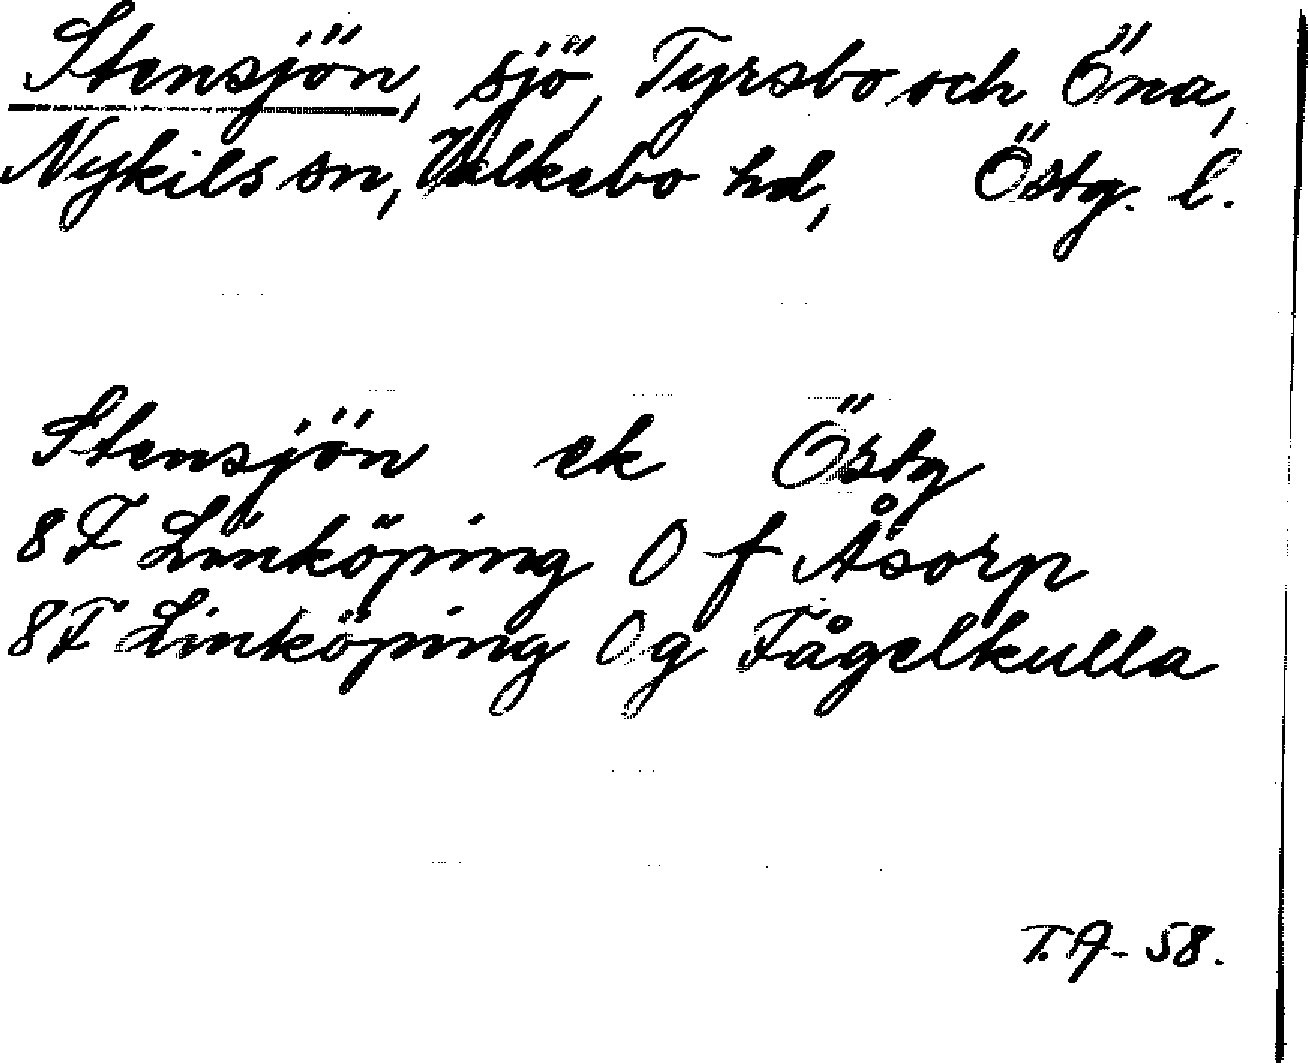 Stensjön, sjö, Tyrsbo och Öna,
Nykils sn, Valkebo hd, Östg. l.
Stensjön ek Östg
8F Linköping 0 f Åsorp
8F Linköping 0 g Fågelkulla
T.A-58.